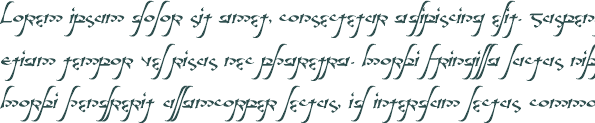 Lorem ipsum dolor sit amet, consectetur adipiscing elit. Suspen
etiam tempor vel risus nec pharetra. Morbi fringilla luctus nib
morbi hendrerit ullamcorper lectus, id interdum lectus commo